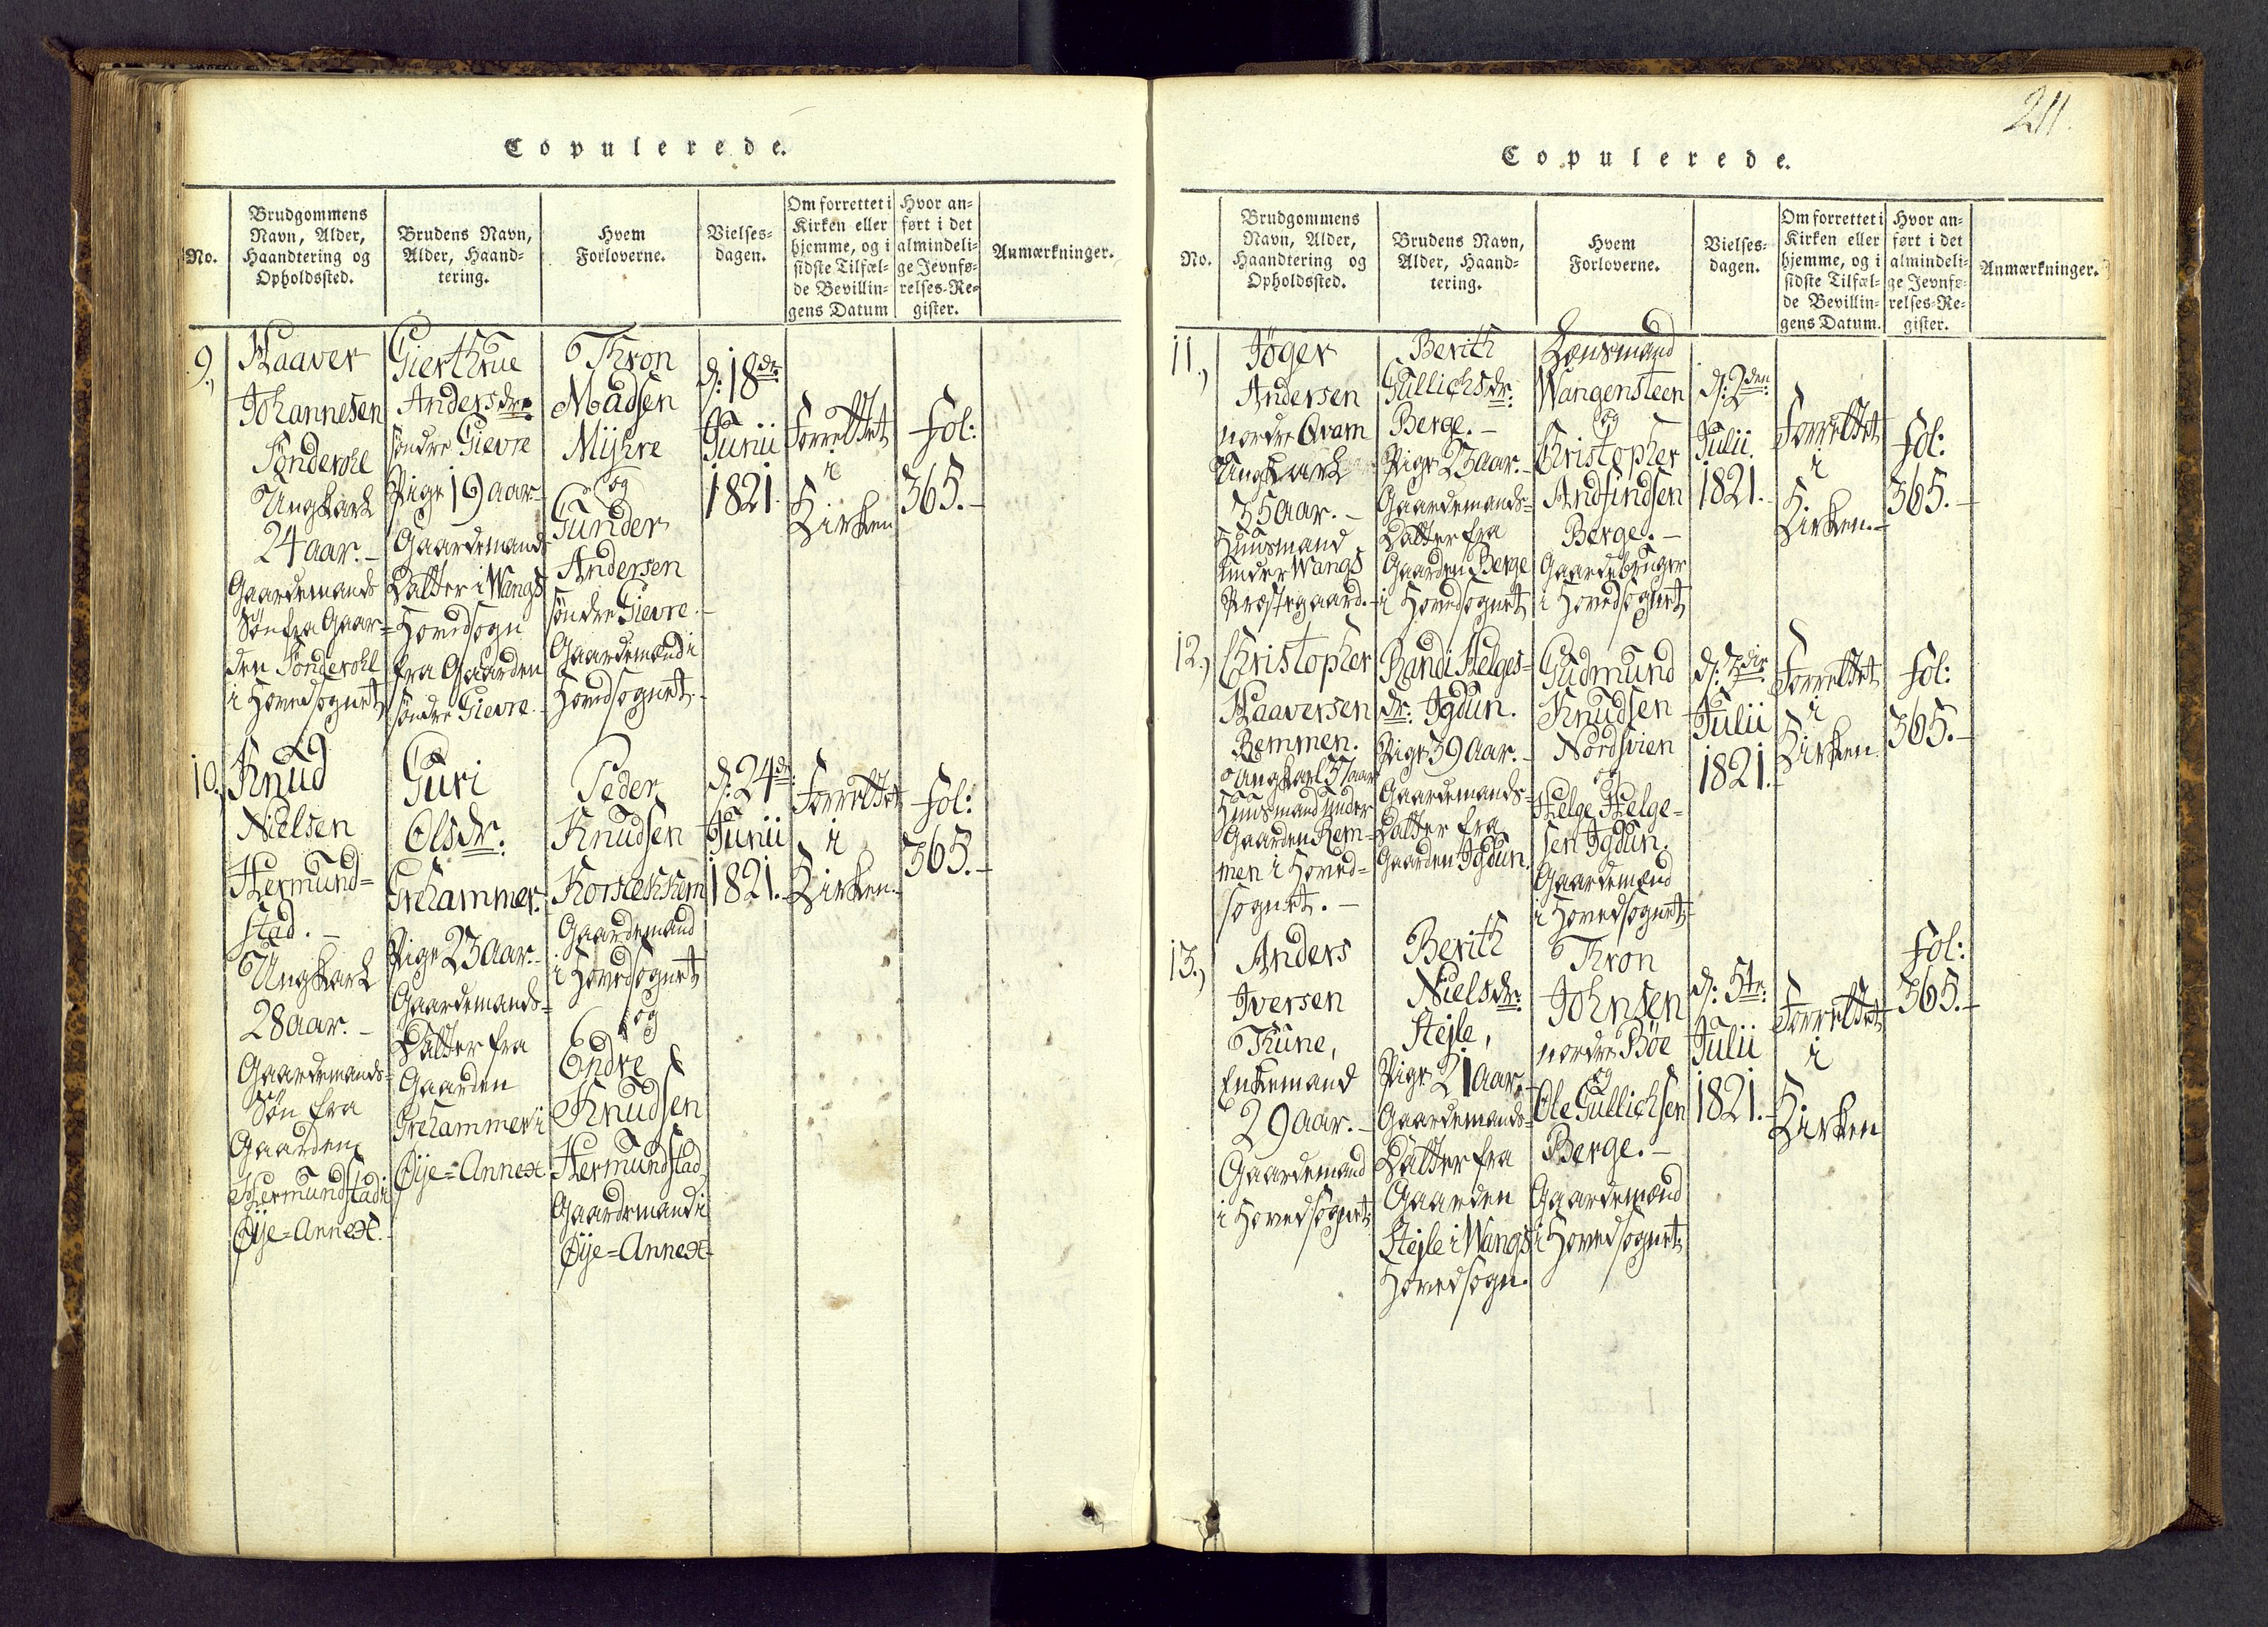 Copulerede.
No.
Brudgommens
Navn, Alder,
Haandtering og
Opholdssted.
Brudens Navn,
Alder, Haand-
tering.
Hvem
Forloverne.
Vielses-
dagen.
Om forrettet i
Kirken eller
hjemme, og i
sidste Tilfæl-
de Bevillin-
gens Datum
Hvor an-
ført i det
almindeli-
ge Jevnfø-
relses-Re-
gister.
Anmærkninger.
9.,
Haaver
Johannesen
Sönderohl
Ungkarl
24 aar. -
Gaardemands
Søn fra Gaar=
den Sönderohl
i Hovedsognet
Gierthrue
Andersdr.
søndre Gievre
Pige 19 aar
Gaardemands
Datter i Wangs
Hovedsogn
fra Gaarden
søndre Gievre.
Thron
Madsen
Mÿhre
og
Gunder
Andersen
søndre Gievre.
Gaardemænd i
Hovedsognet.
d: 18de
Junii
1821.
Forrettet
i
Kirken
Fol:
365. -
10.,
Knud
Nielsen
Hermund=
stad. -
Ungkarl
28 aar. -
Gaardemands=
Søn fra
Gaarden
Hermundstad i
Øÿe=Annext.
Guri
Olsdr:
Grehammer.
Pige 23 aar.
Gaardemands=
Datter fra
Gaarden
Grehammer i
Øÿe=Annext
Peder
Knudsen
Gaardemand
i Hovedsognet
og
Endre
Knudsen
Hermundstad
Gaardemand i
Øÿe=Annext
d: 24de
Junii
1821.
Forrettet
i
Kirken.
Fol:
365. -
211.
Copulerede.
No.
Brudgommens
Navn, Alder,
Haandtering og
Opholdssted.
Brudens Navn,
Alder, Haand-
tering.
Hvem
Forloverne.
Vielses-
dagen.
Om forrettet i
Kirken eller
hjemme, og i
sidste Tilfæl-
de Bevillin-
gens Datum.
Hvor an-
ført i det
almindeli-
ge Jevnfø-
relses-Re-
gister.
Anmærkninger.
11.,
Jöger
Andersen
nordre Qvam
Ungkarl
35 aar. -
Huusmand
under Wangs
Præstegaard.
Berith
Gullichsdr:
Berge. -
Pige 23 aar. -
Gaardemands=
Datter fra
Gaarden Berge
i Hovedsognet
Lensmand
Wangensteen
og
Christopher
Andfindsen
Berge. -
Gaardebruger
i Hovedsognet
d: 2den
Julii.
1821.
Forrettet
i
Kirken. -
Fol:
365. -
12.,
Christopher
Haaversen
Remmen.
Ungkarl 37 aar
Huusmand under
Gaarden Rem=
men i Hoved=
sognet. -
Randi Helges=
dr: Jgdun.
Pige 39 aar. -
Gaardemands=
Datter fra
Gaarden Jgdun.
Gudmund
Knudsen
Nordsvien
og
Helge Helge=
sen Jgdun.
Gaardemænd
i Hovedsognet
d: 3die
Julii
1821.
Forrettet
i
Kirken
Fol:
365. -
13.,
Anders
Jversen
Thune,
Enkemand
29 aar. -
Gaardemand
i Hovedsognet.
Berith
Nielsdr:
Stejle,
Pige 21 aar.
Gaardemands=
Datter fra
Gaarden
Stejle i Wangs
Hovedsogn.
Thron
Johnsen
nordre Böe
og
Ole Gullichsen
Berge. -
Gaardemænd
i Hovedsognet.
d: 5te:
Julii
1821.
Forrettet
i
Kirken
Fol:
365. -